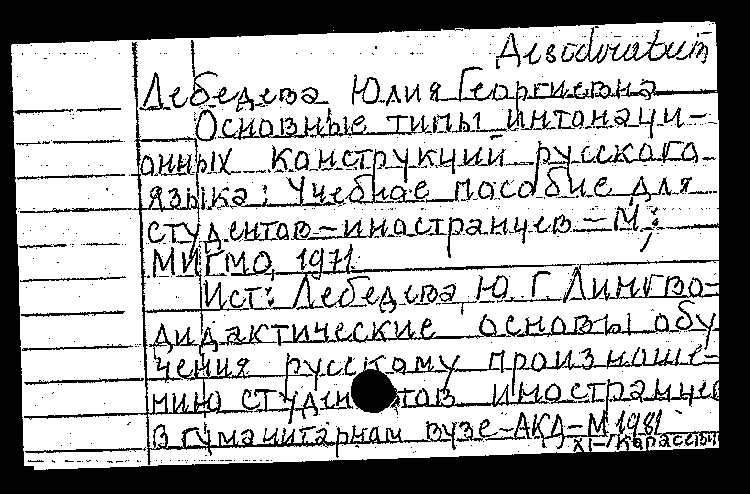 Лебедева Юлия Георгиевна
Основные типы интонаци-
онных конструкций русского
языка: Учебное пособие для
студентов-иностранцев - М.;
МИГМО, 1971.
Ист: Лебедева Ю. Г. Лингво-
дидактические основы обу
чения русскому произноше-
нию студентов иностранцев
в гуманитарном вузе-АКД-М 1981